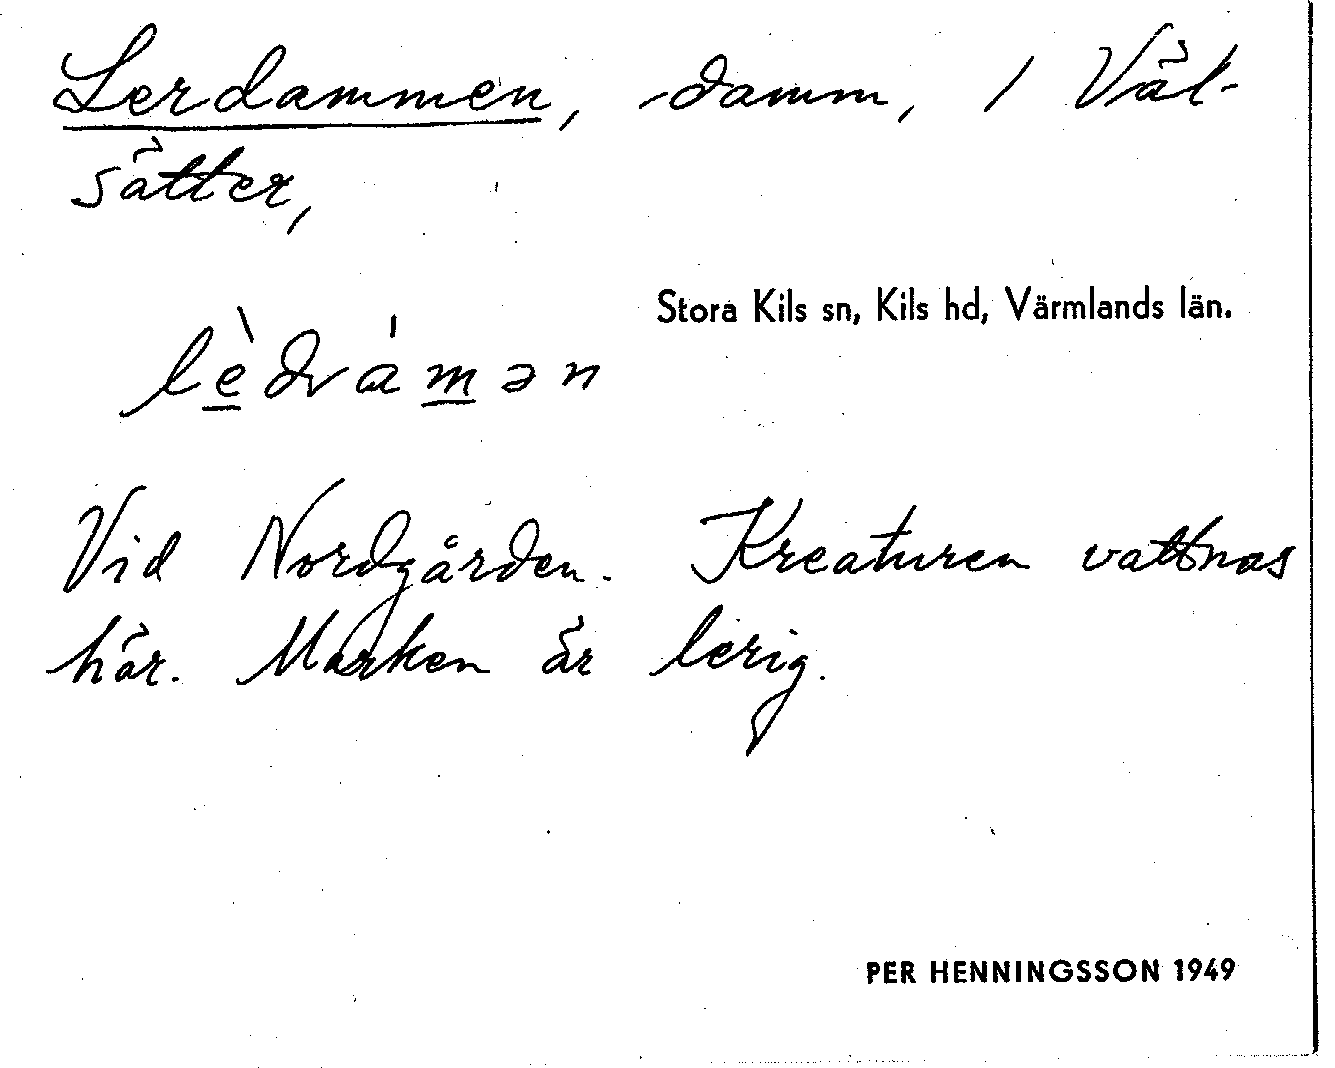 Lerdammen, damm, / Väl-
sätter,
Stora Kils sn, Kils hd, Värmlands län.
Vid Nordgården. Kreaturen vattnas
här. Marken är lerig.
PER HENNINGSSON 1949